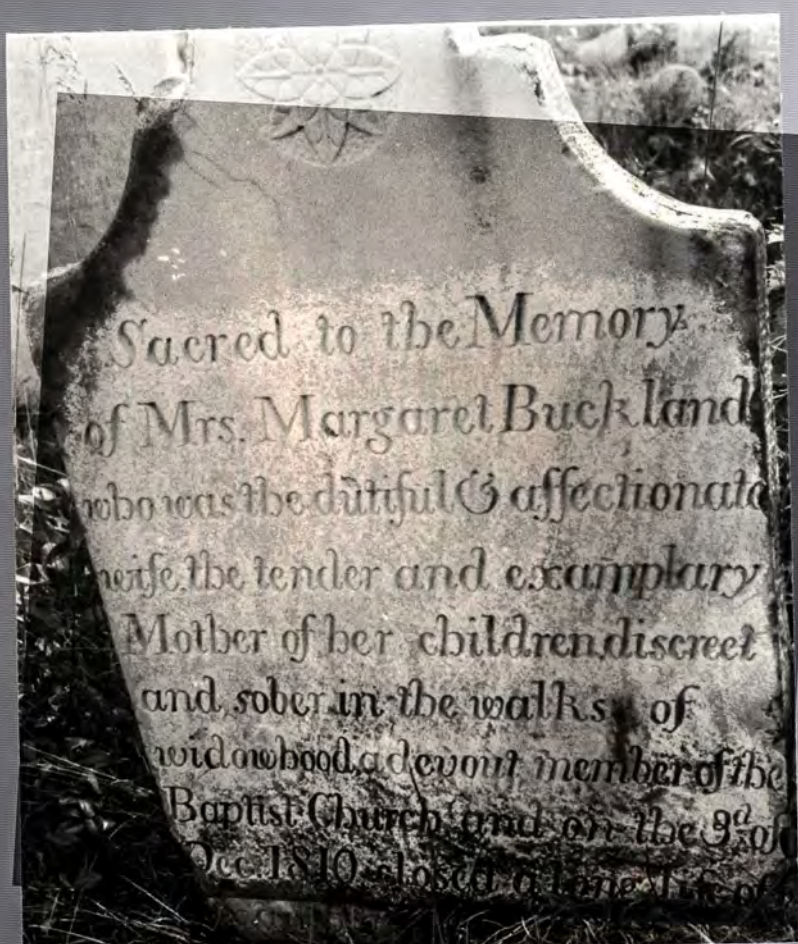 Sacred to the Memory
of Mrs. Margaret Buckland
who was the dutiful & affectionate
wife, the tender and examplary
Mother of her children, discreet
and sober in the walks of
widowhood, a devout member of the
Baptist Church and on the 3d of
Dec. 1810 closed a long life of